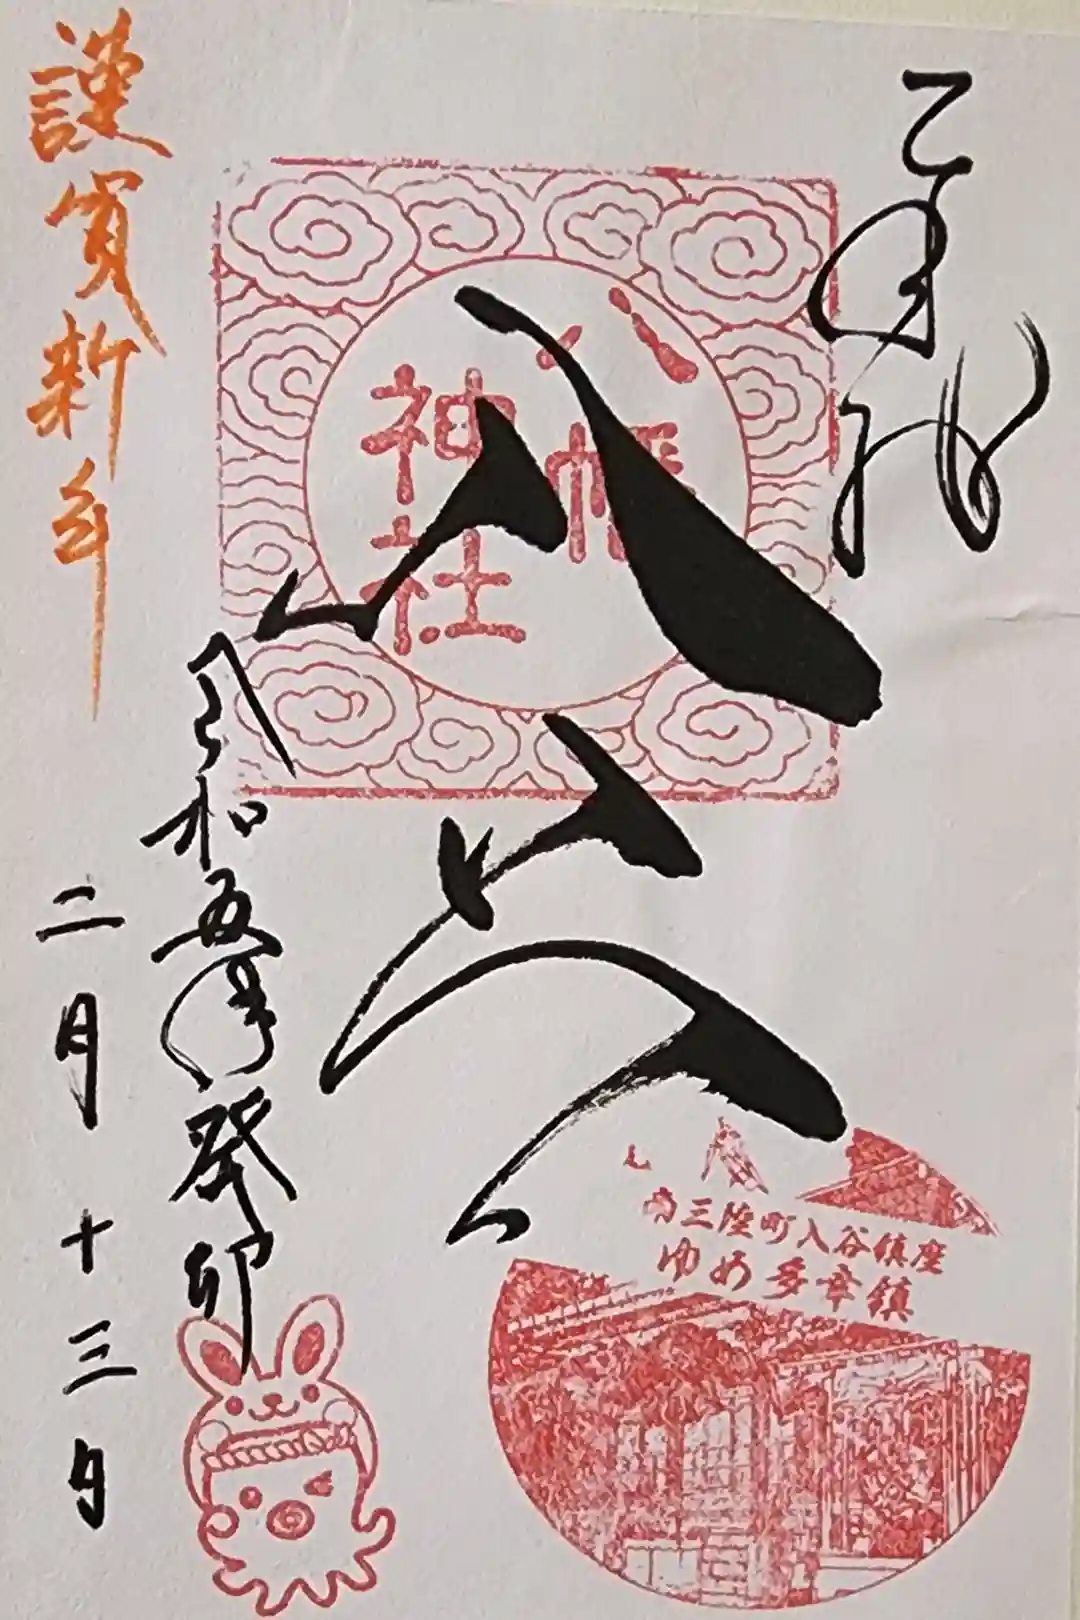 八幡
神社
南三陸町入谷鎮座
ゆめ多幸鎮
令和五年癸卯
二月十三日
謹賀新年